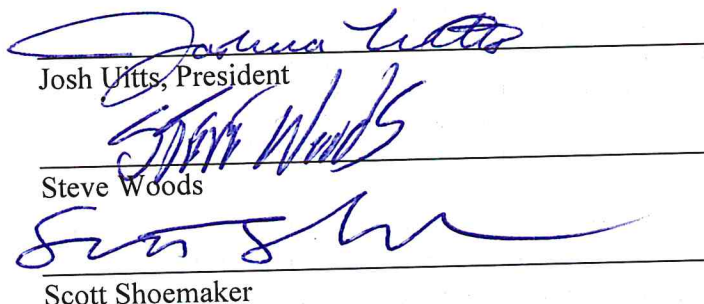 Joshua Uitts
Josh Uitts, President
Steve Woods
Steve Woods
Scott Shoemaker